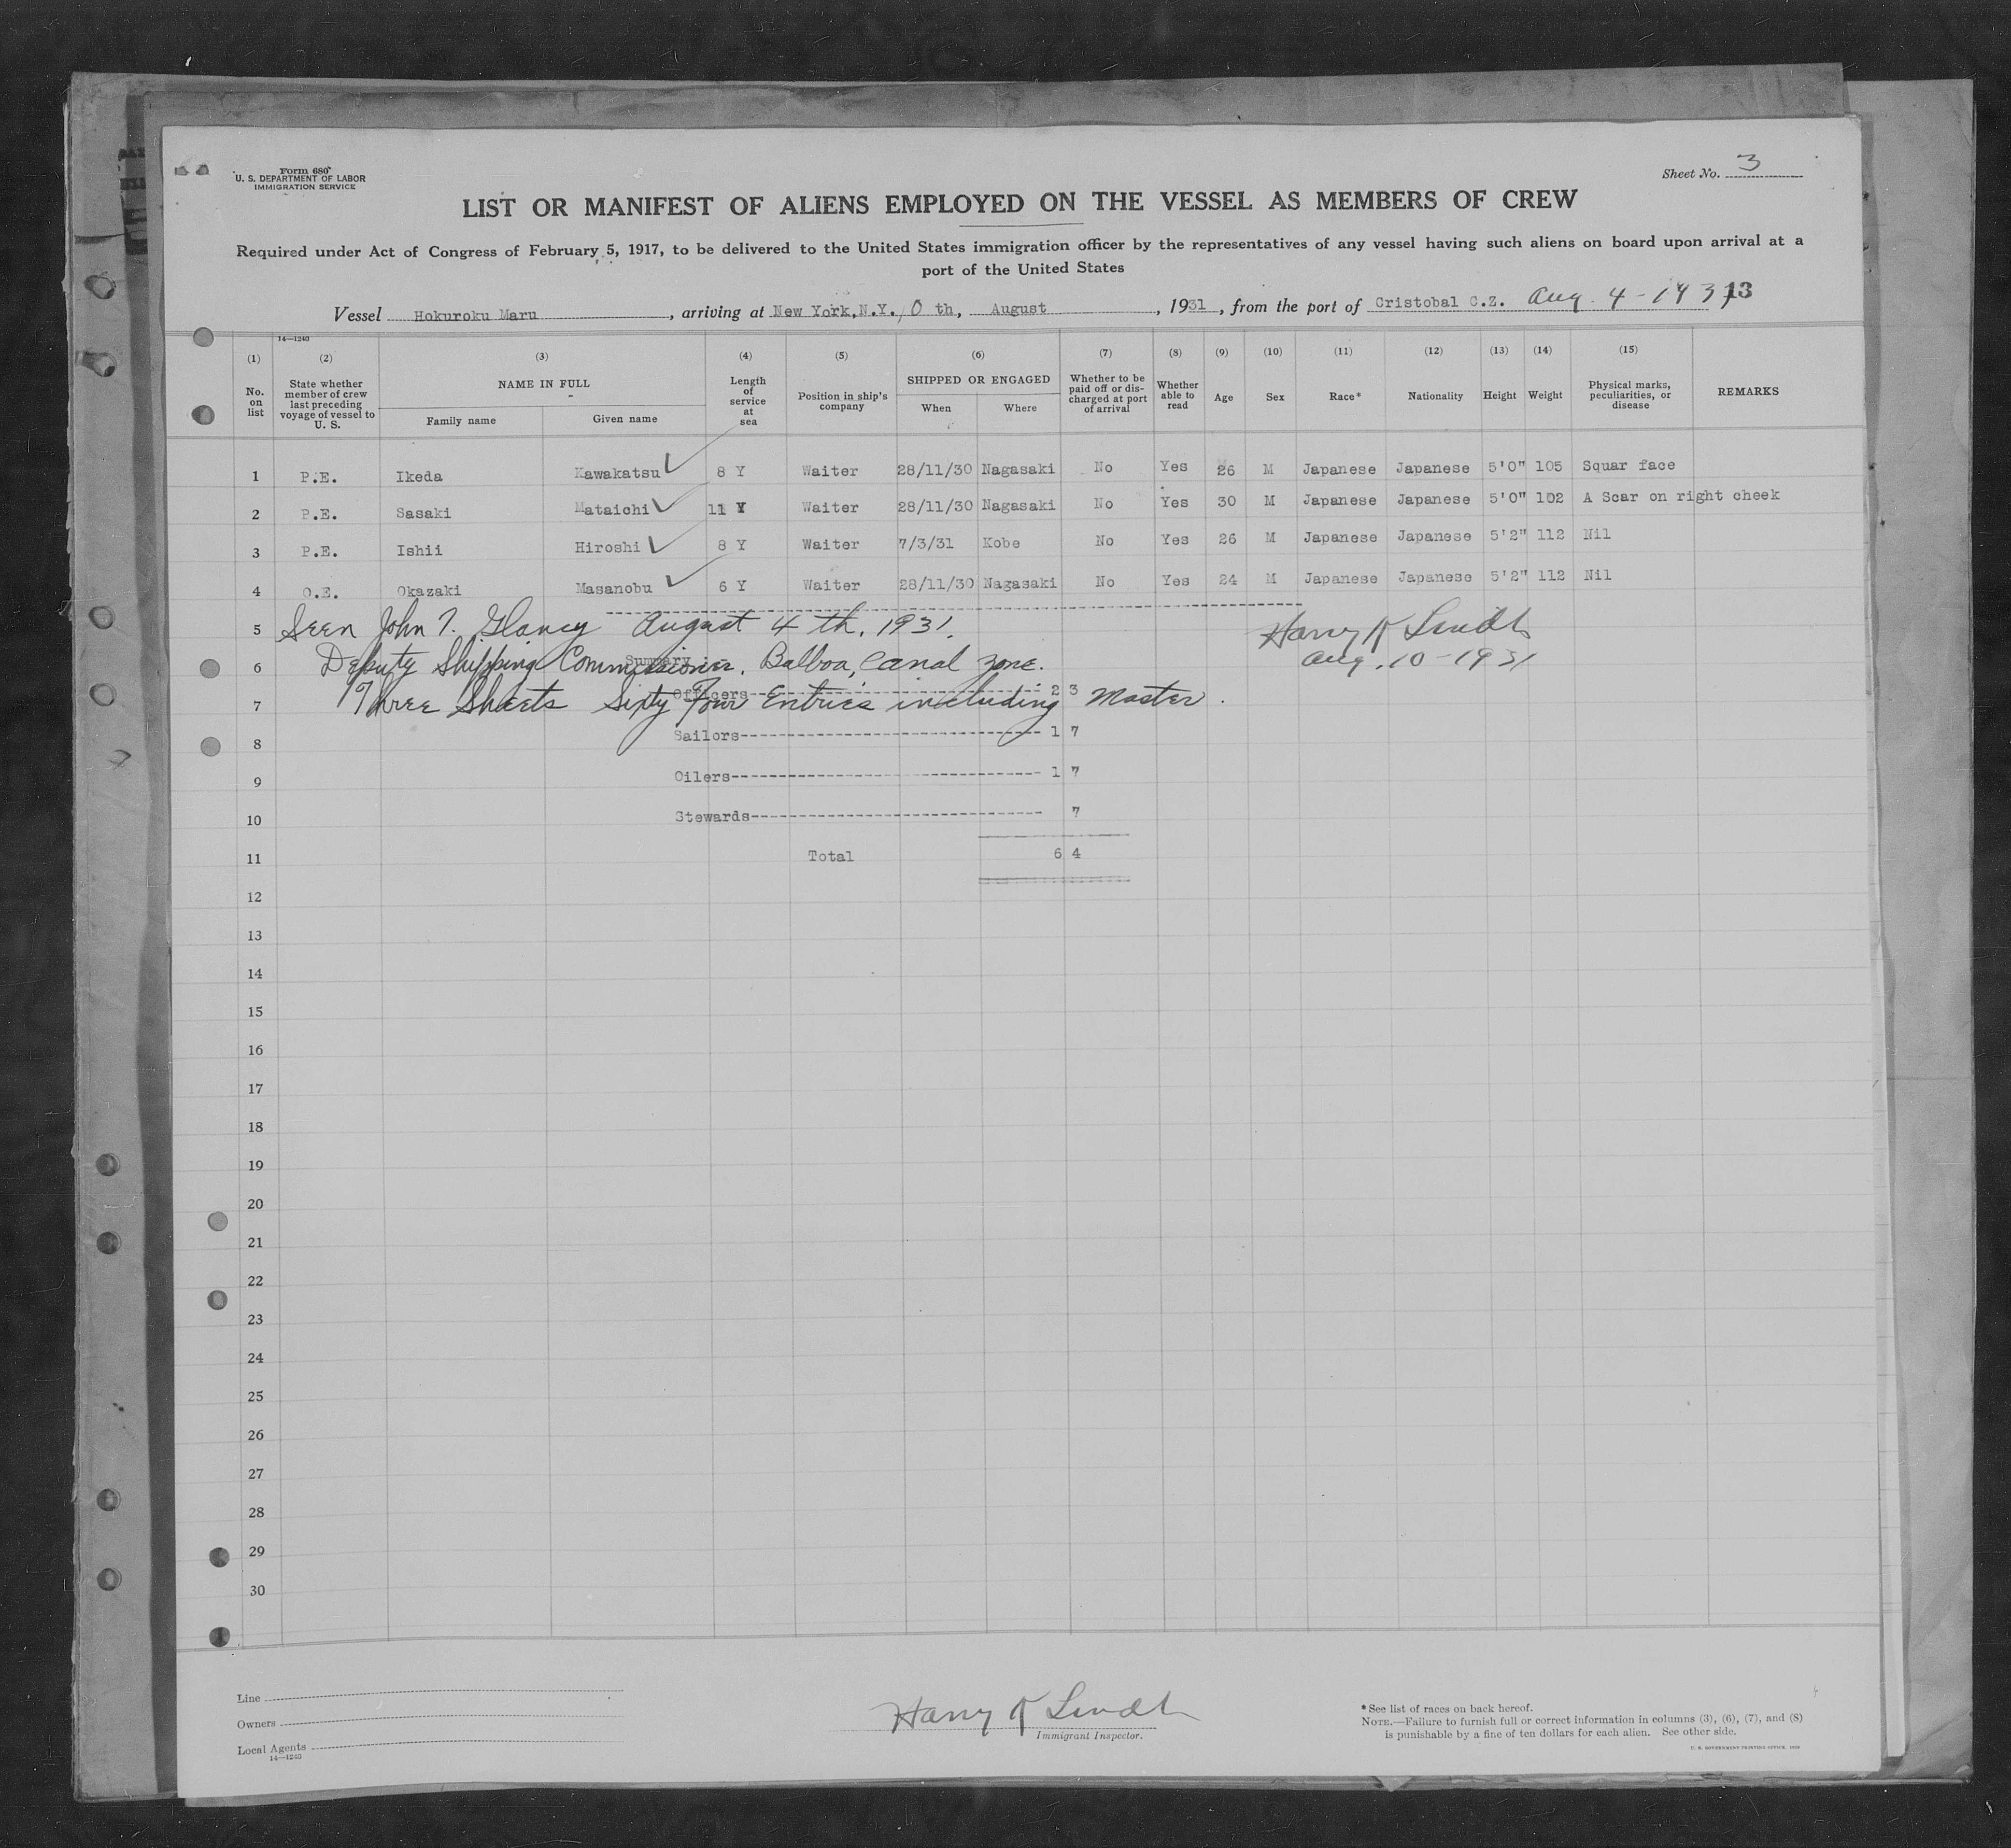 Form 680
U. S. DEPARTMENT OF LABOR
IMMIGRATION SERVICE
Sheet No. 3
LIST OR MANIFEST OF ALIENS EMPLOYED ON THE VESSEL AS MEMBERS OF CREW
Required under Act of Congress of February 5, 1917, to be delivered to the United States immigration officer by the representatives of any vessel having such aliens on board upon arrival at a
port of the United States
Vessel Hokuroku Maru, arriving at New York, N.Y. 10 th, August, 1931, from the port of Cristobal C.Z. Aug. 4 - 1931 13
14—1240
(1) (2) (3) (4) (5) (6) (7) (8) (9) (10) (11) (12) (13) (14) (15)
No. on list State whether member of crew last preceding voyage of vessel to U. S. NAME IN FULL Family name Given name Length of service at sea Position in ship's company SHIPPED OR ENGAGED When Where Whether to be paid off or discharged at port of arrival Whether able to read Age Sex Race* Nationality Height Weight Physical marks, peculiarities, or disease REMARKS
1 P.E. Ikeda Kawakatsu 8 Y Waiter 28/11/30 Nagasaki No Yes 26 M Japanese Japanese 5'0" 105 Squar face
2 P.E. Sasaki Mataichi 11 Y Waiter 28/11/30 Nagasaki No Yes 30 M Japanese Japanese 5'0" 102 A Scar on right cheek
3 P.E. Ishii Hiroshi 8 Y Waiter 7/3/31 Kobe No Yes 26 M Japanese Japanese 5'2" 112 Nil
4 O.E. Okazaki Masanobu 6 Y Waiter 28/11/30 Nagasaki No Yes 24 M Japanese Japanese 5'2" 112 Nil
5 Seen John T. Glancy August 4 th, 1931. Harry K Lindt
6 Deputy Shipping Commissioner, Balboa, Canal Zone. Aug. 10 - 1931
Summary
Officers 2 3
7 Three Sheets Sixty Four Entries including Master.
8 Sailors 1 7
9 Oilers 1 7
10 Stewards 7
11 Total 6 4
12
13
14
15
16
17
18
19
20
21
22
23
24
25
26
27
28
29
30
Line
Owners
Local Agents
14—1240
Harry K Lindt
Immigrant Inspector.
* See list of races on back hereof.
NOTE.—Failure to furnish full or correct information in columns (3), (6), (7), and (8)
is punishable by a fine of ten dollars for each alien. See other side.
U. S. GOVERNMENT PRINTING OFFICE